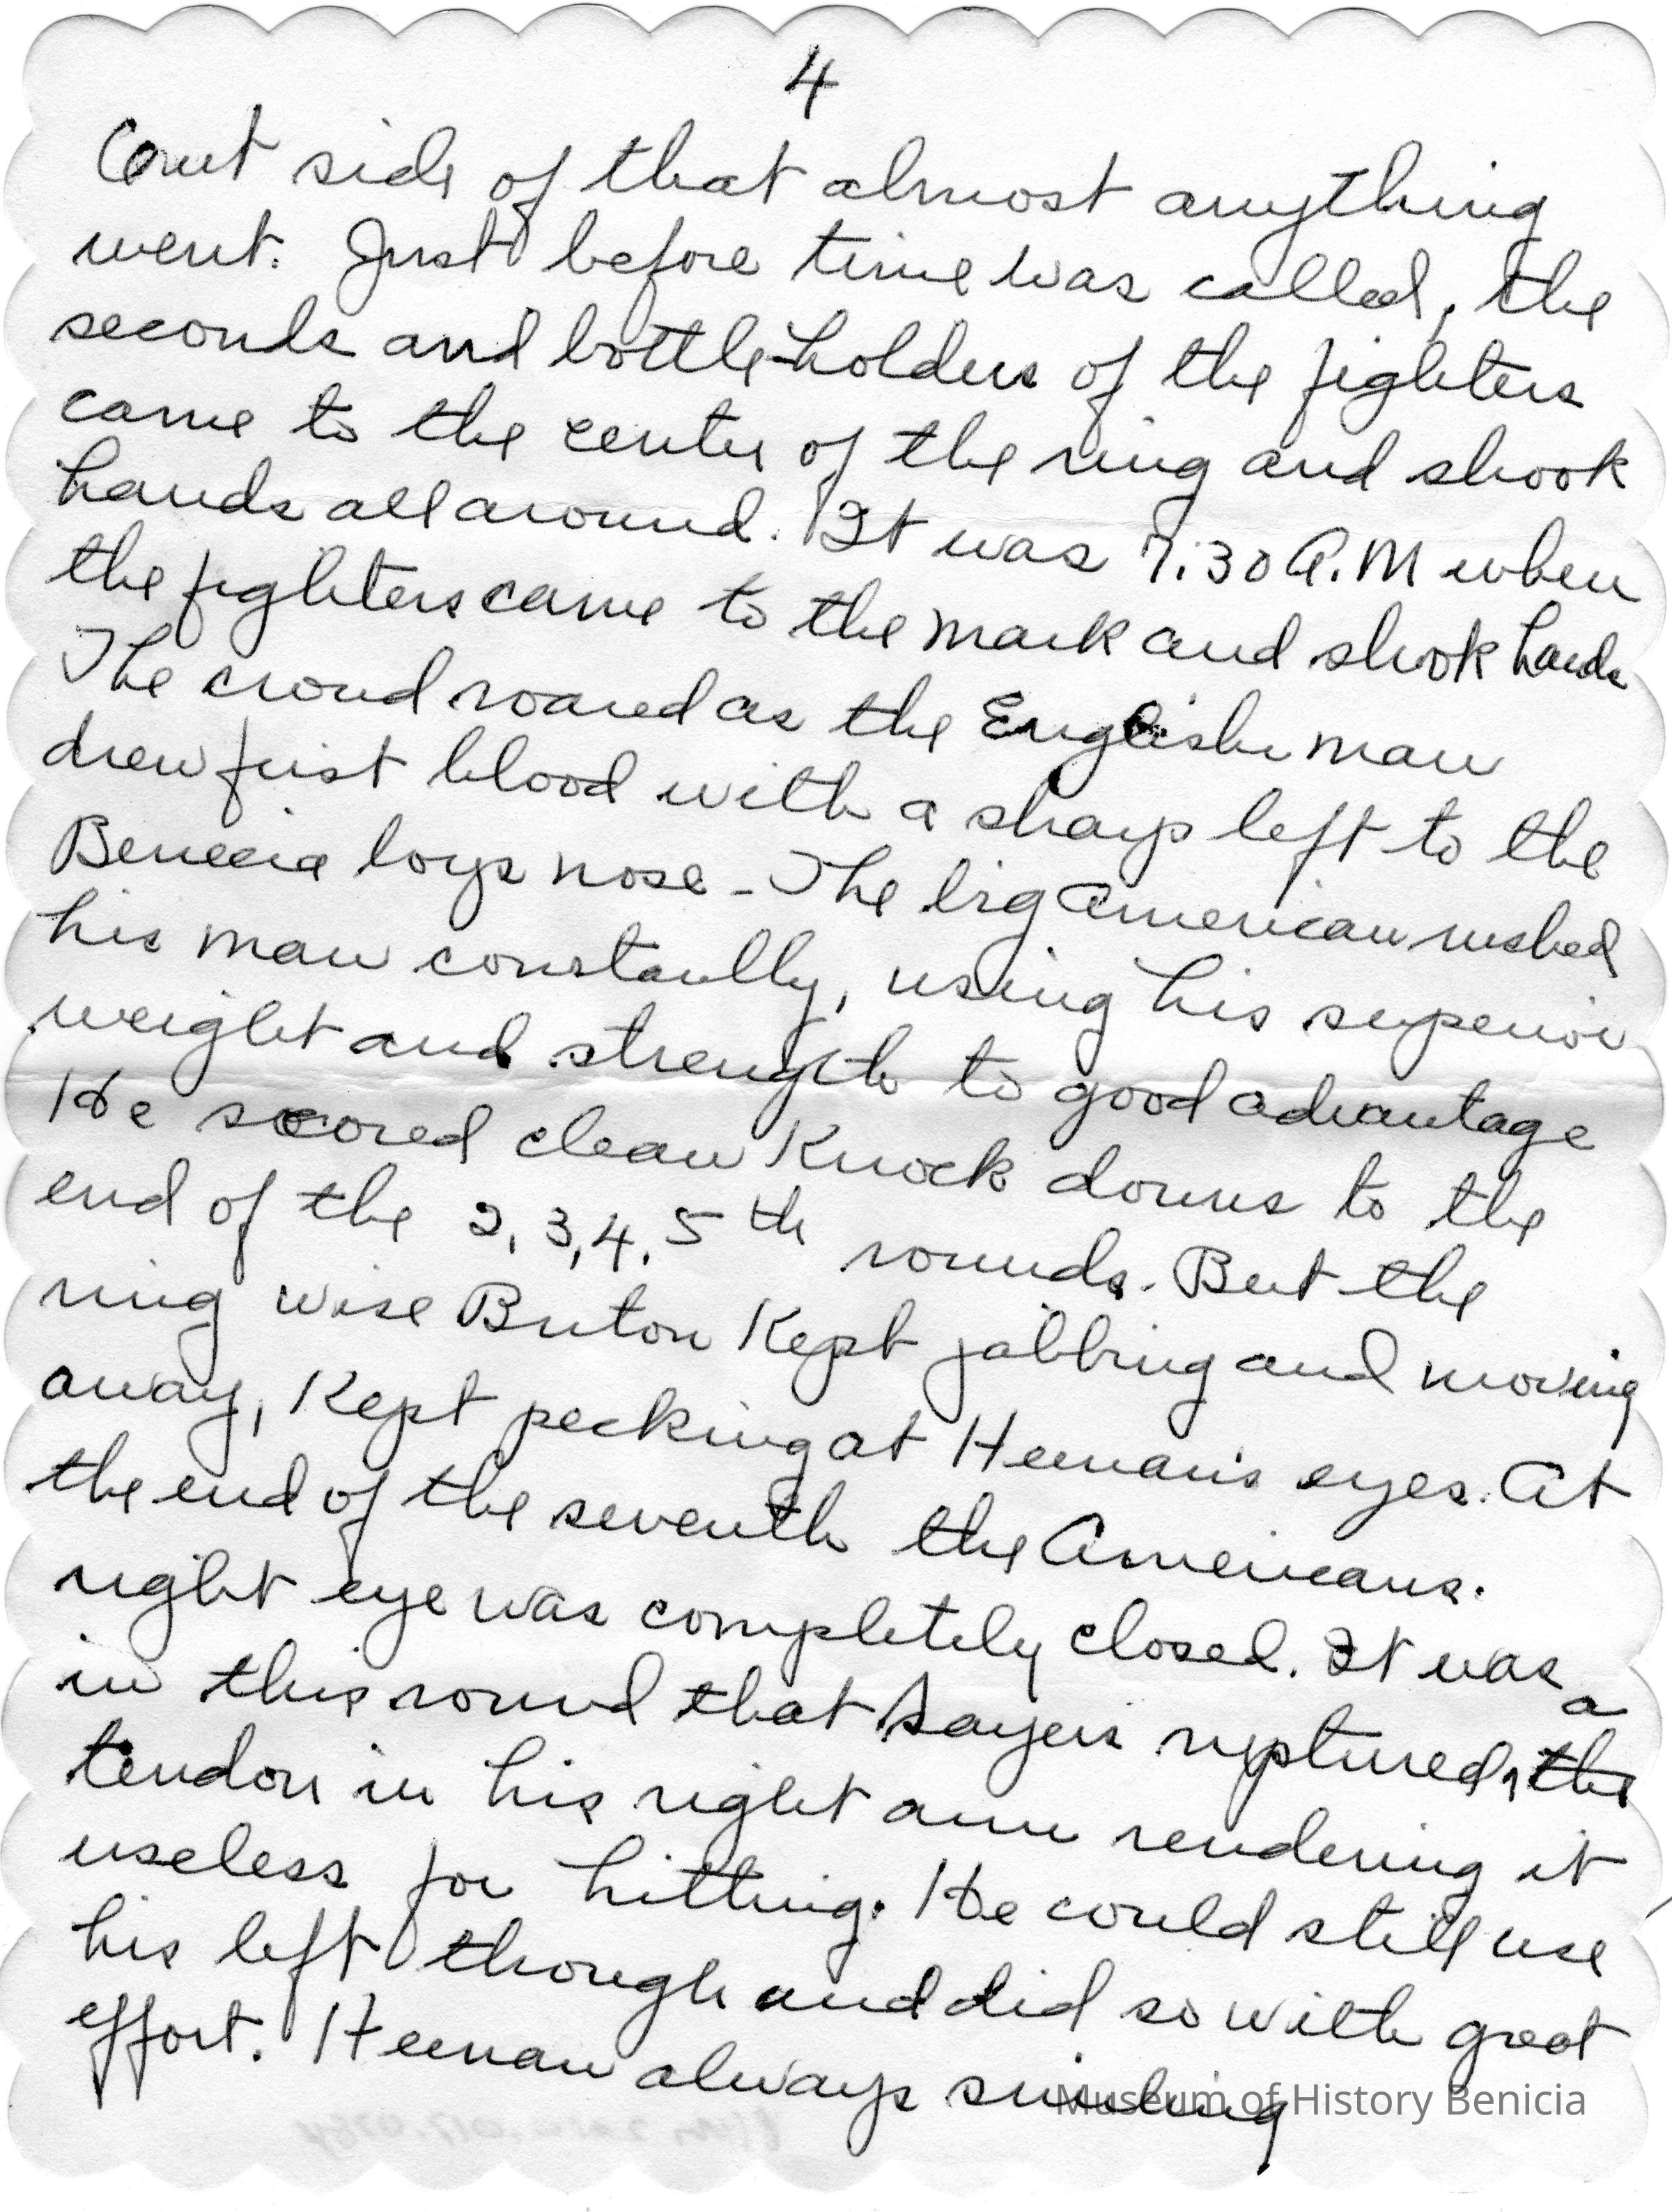 4
Out side of that almost anything
went. Just before time was called, the
seconds and bottle-holders of the fighters
came to the center of the ring and shook
hands all around. It was 7:30 A.M when
the fighters came to the mark and shook hands
The crowd roared as the English man
drew first blood with a sharp left to the
Benecia boys nose - The big American rushed
his man constantly, using his superior
weight and strength to good advantage
He scored clean Knock downs to the
end of the 2, 3, 4, 5th rounds. But the
ring wise Briton Kept jabbing and moving
away, Kept pecking at Heenan's eyes. At
the end of the seventh the Americans.
right eye was completely closed. It was
in this round that Sayers ruptured, the a
tendon in his right arm rendering it
useless for hitting. He could still use
his left though and did so with great
effort. Heenan always smiling
Museum of History Benicia